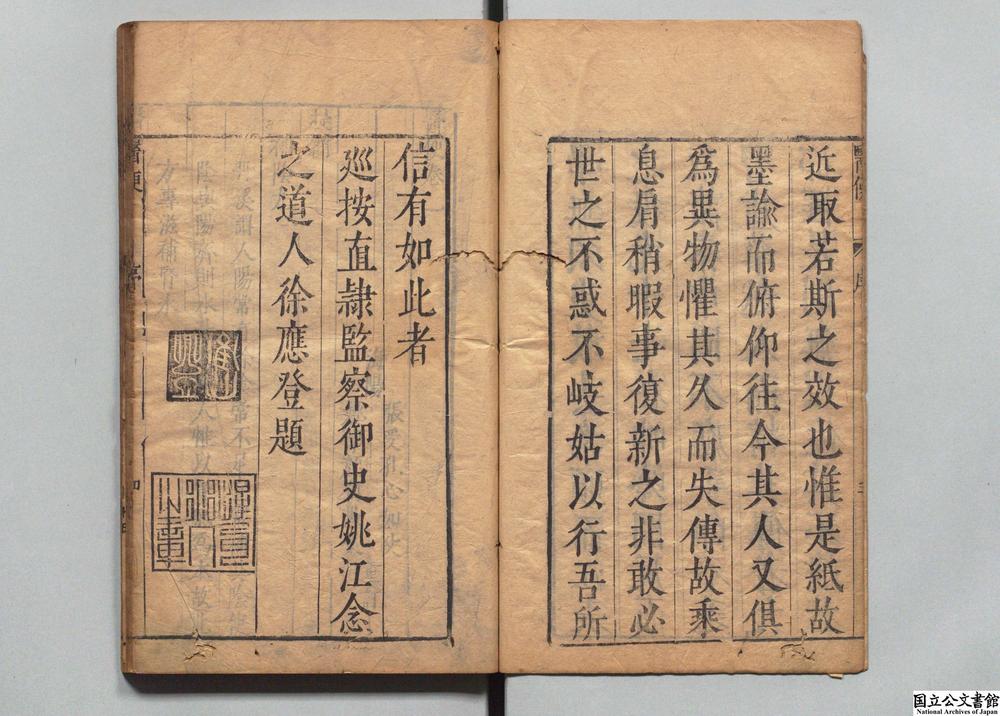 近取若斯之效也惟是紙故
墨諭而俯仰往今其人又俱
為異物懼其久而失傳故乘
息肩稍暇事復新之非敢必
世之不惑不岐姑以行吾所
信有如此者
廵按直隷監察御史姚江念
之道人徐應登題
国立公文書館
National Archives of Japan